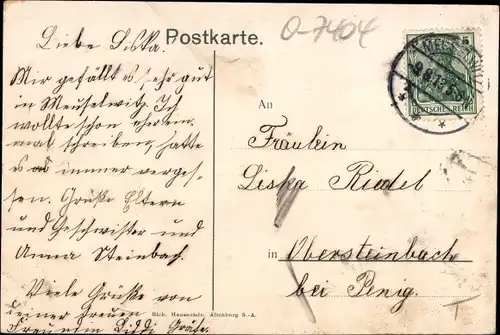 Postkarte.
O-7404
Liebe Liska.
Mir gefällt es sehr gut
in Meuselwitz. Ich
wollte schon eher ein-
mal schreiben, hatte
es immer verges-
sen. Grüße Eltern
und Geschwister und
Anna Steinbach.
Viele Grüße von
deiner treuen
Freundin Liddi Gräfe.
MEUSELWITZ
5
DEUTSCHES REICH
An
Fräulein
Liska Riedel
in Obersteinbach
bei Penig.
Rich. Hauenstein, Altenburg S.-A.